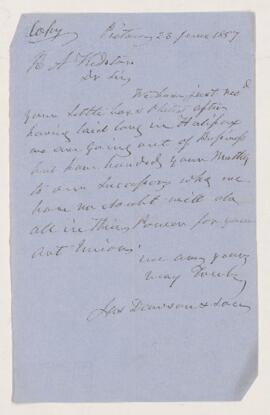 Copy Pictou 23 June 1857
R A Kidston
Dr Sir,
We have just recd
your little box & Photo after
having laid long in Halifax
we are going out of Business
but have handed your
to our Successors who we
have no doubt will do
all in their Power for your
Art Union.
we are yours
very Truly
Jas Dawson & Son